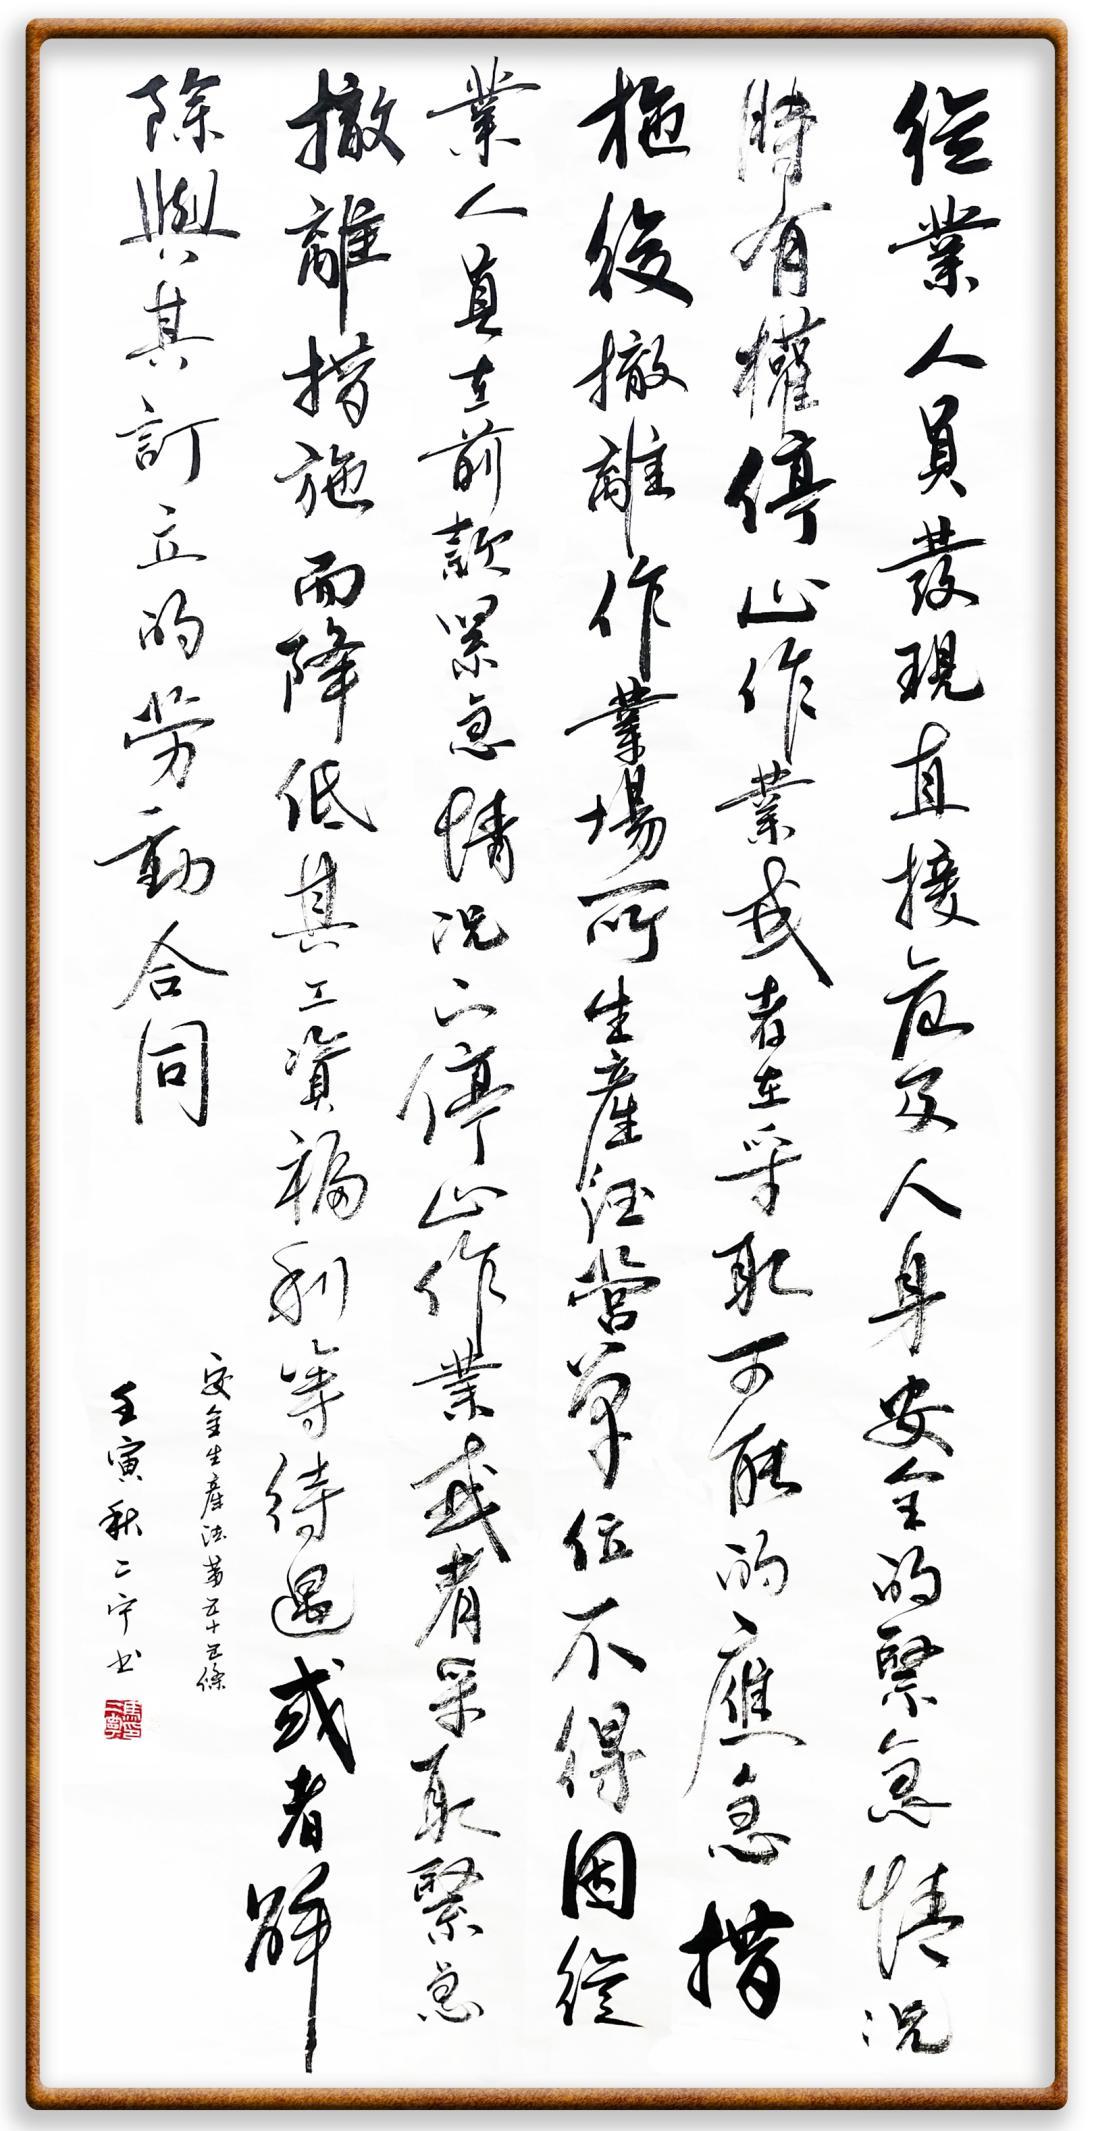 從業人員發現直接危及人身安全的緊急情況
時有權停止作業或者在采取可能的應急措
施後撤離作業場所生產經營單位不得因從
業人員在前款緊急情況下停止作業或者采取緊急
撤離措施而降低其工資福利等待遇或者解
除與其訂立的勞動合同
安全生產法第五十五條
壬寅秋二寧书